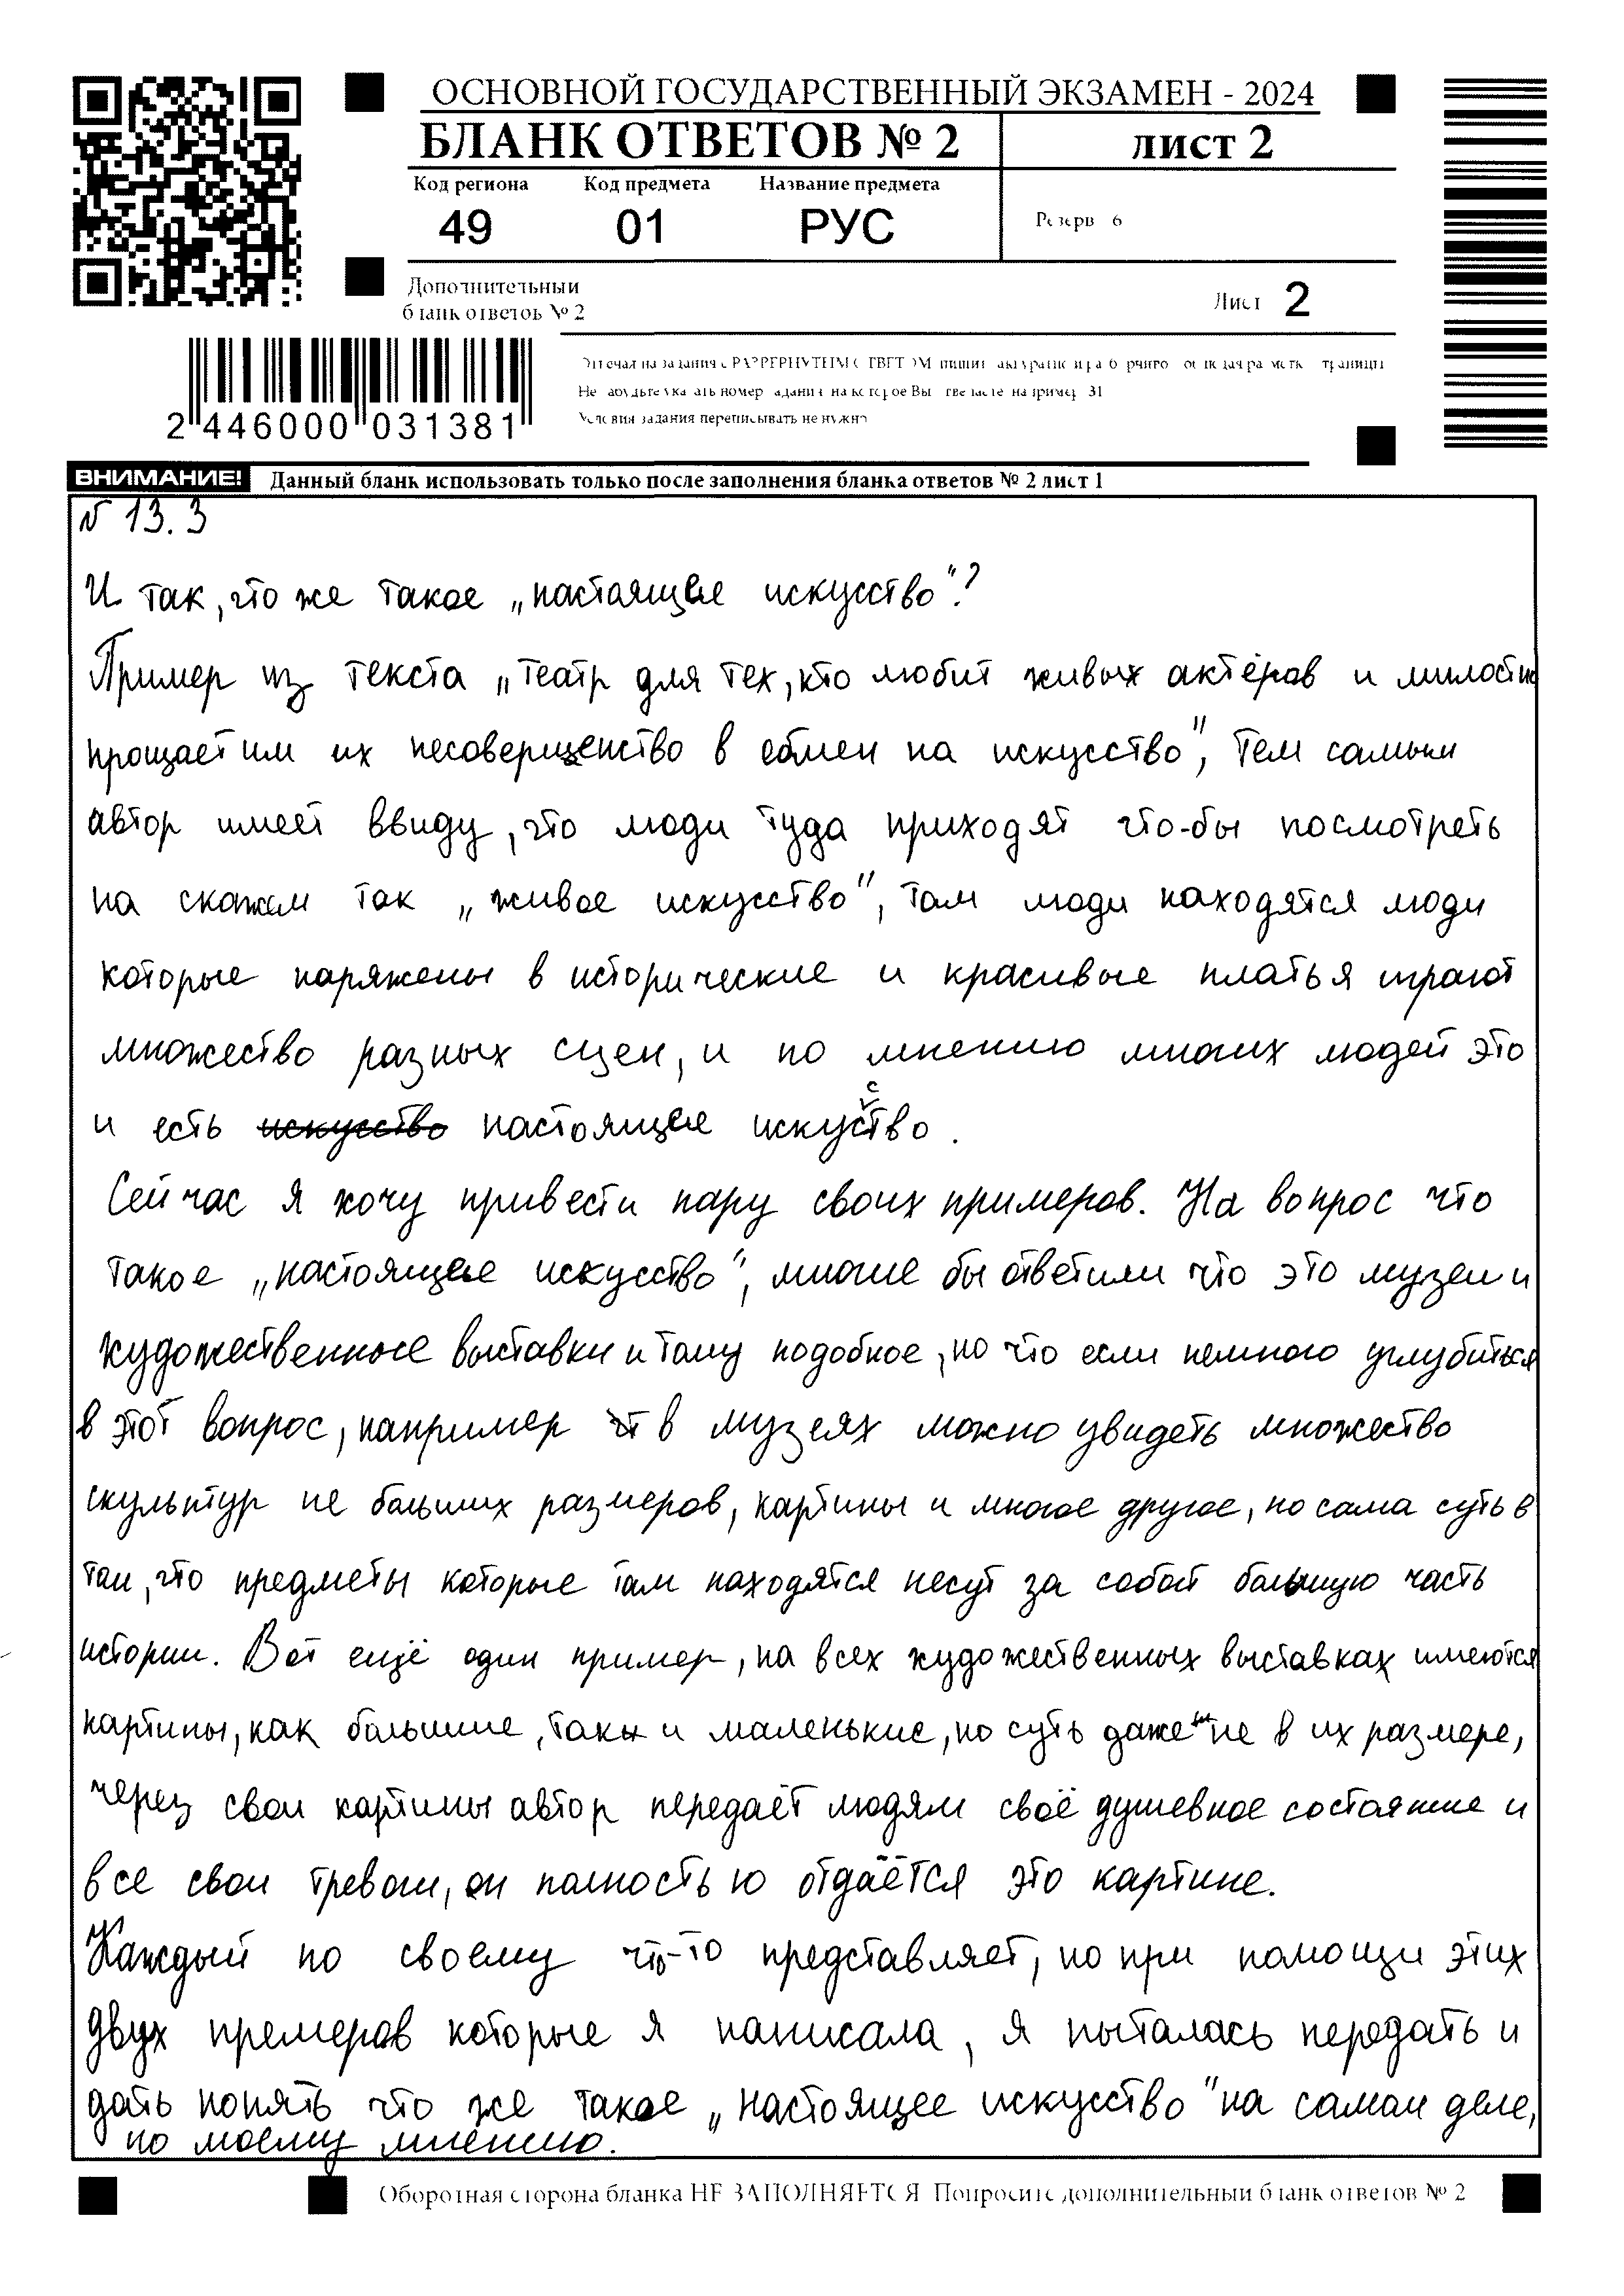 ОСНОВНОЙ ГОСУДАРСТВЕННЫЙ ЭКЗАМЕН - 2024
БЛАНК ОТВЕТОВ № 2
лист 2
Код региона Код предмета Название предмета
49 01 РУС
Резерв 6
Дополнительный
бланк ответов № 2
Лист 2
2 446000 031381
Условия задания переписывать не нужно
ВНИМАНИЕ! Данный бланк использовать только после заполнения бланка ответов № 2 лист 1
№ 13.3
И так, что же такое „настоящее искусство"?
Пример из текста „театр для тех, кто любит живых актёров и милости
прощает им их несовершенство в обмен на искусство", тем самым
автор имеет ввиду, что люди туда приходят что-бы посмотреть
на скажем так „живое искусство", там люди находятся люди
которые наряжены в исторические и красивые платья играют
множество разных сцен, и по мнению многих людей это
и есть искусство настоящее искусство.
Сейчас я хочу привести пару своих примеров. На вопрос что
такое „настоящее искусство", многие бы ответили что это музеи и
художественные выставки и тому подобное, но что если немного углубиться
в этот вопрос, например в музеях можно увидеть множество
скульптур не больших размеров, картины и многое другое, но сама суть в
том, что предметы которые там находятся несут за собой большую часть
истории. Вот ещё один пример, на всех художественных выставках имеются
картины, как большие, так и маленькие, но суть даже не в их размере,
через свои картины автор передаёт людям своё душевное состояние и
все свои тревоги, он полностью отдаётся это картине.
Каждый по своему что-то представляет, но при помощи этих
двух премеров которые я написала, я пыталась передать и
дать понять что же такое „настоящее искусство" на самом деле,
по моему мнению.
Оборотная сторона бланка НЕ ЗАПОЛНЯЕТСЯ Попросите дополнительный бланк ответов № 2